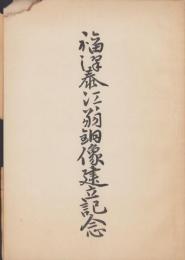 福澤泰江翁銅像建立記念